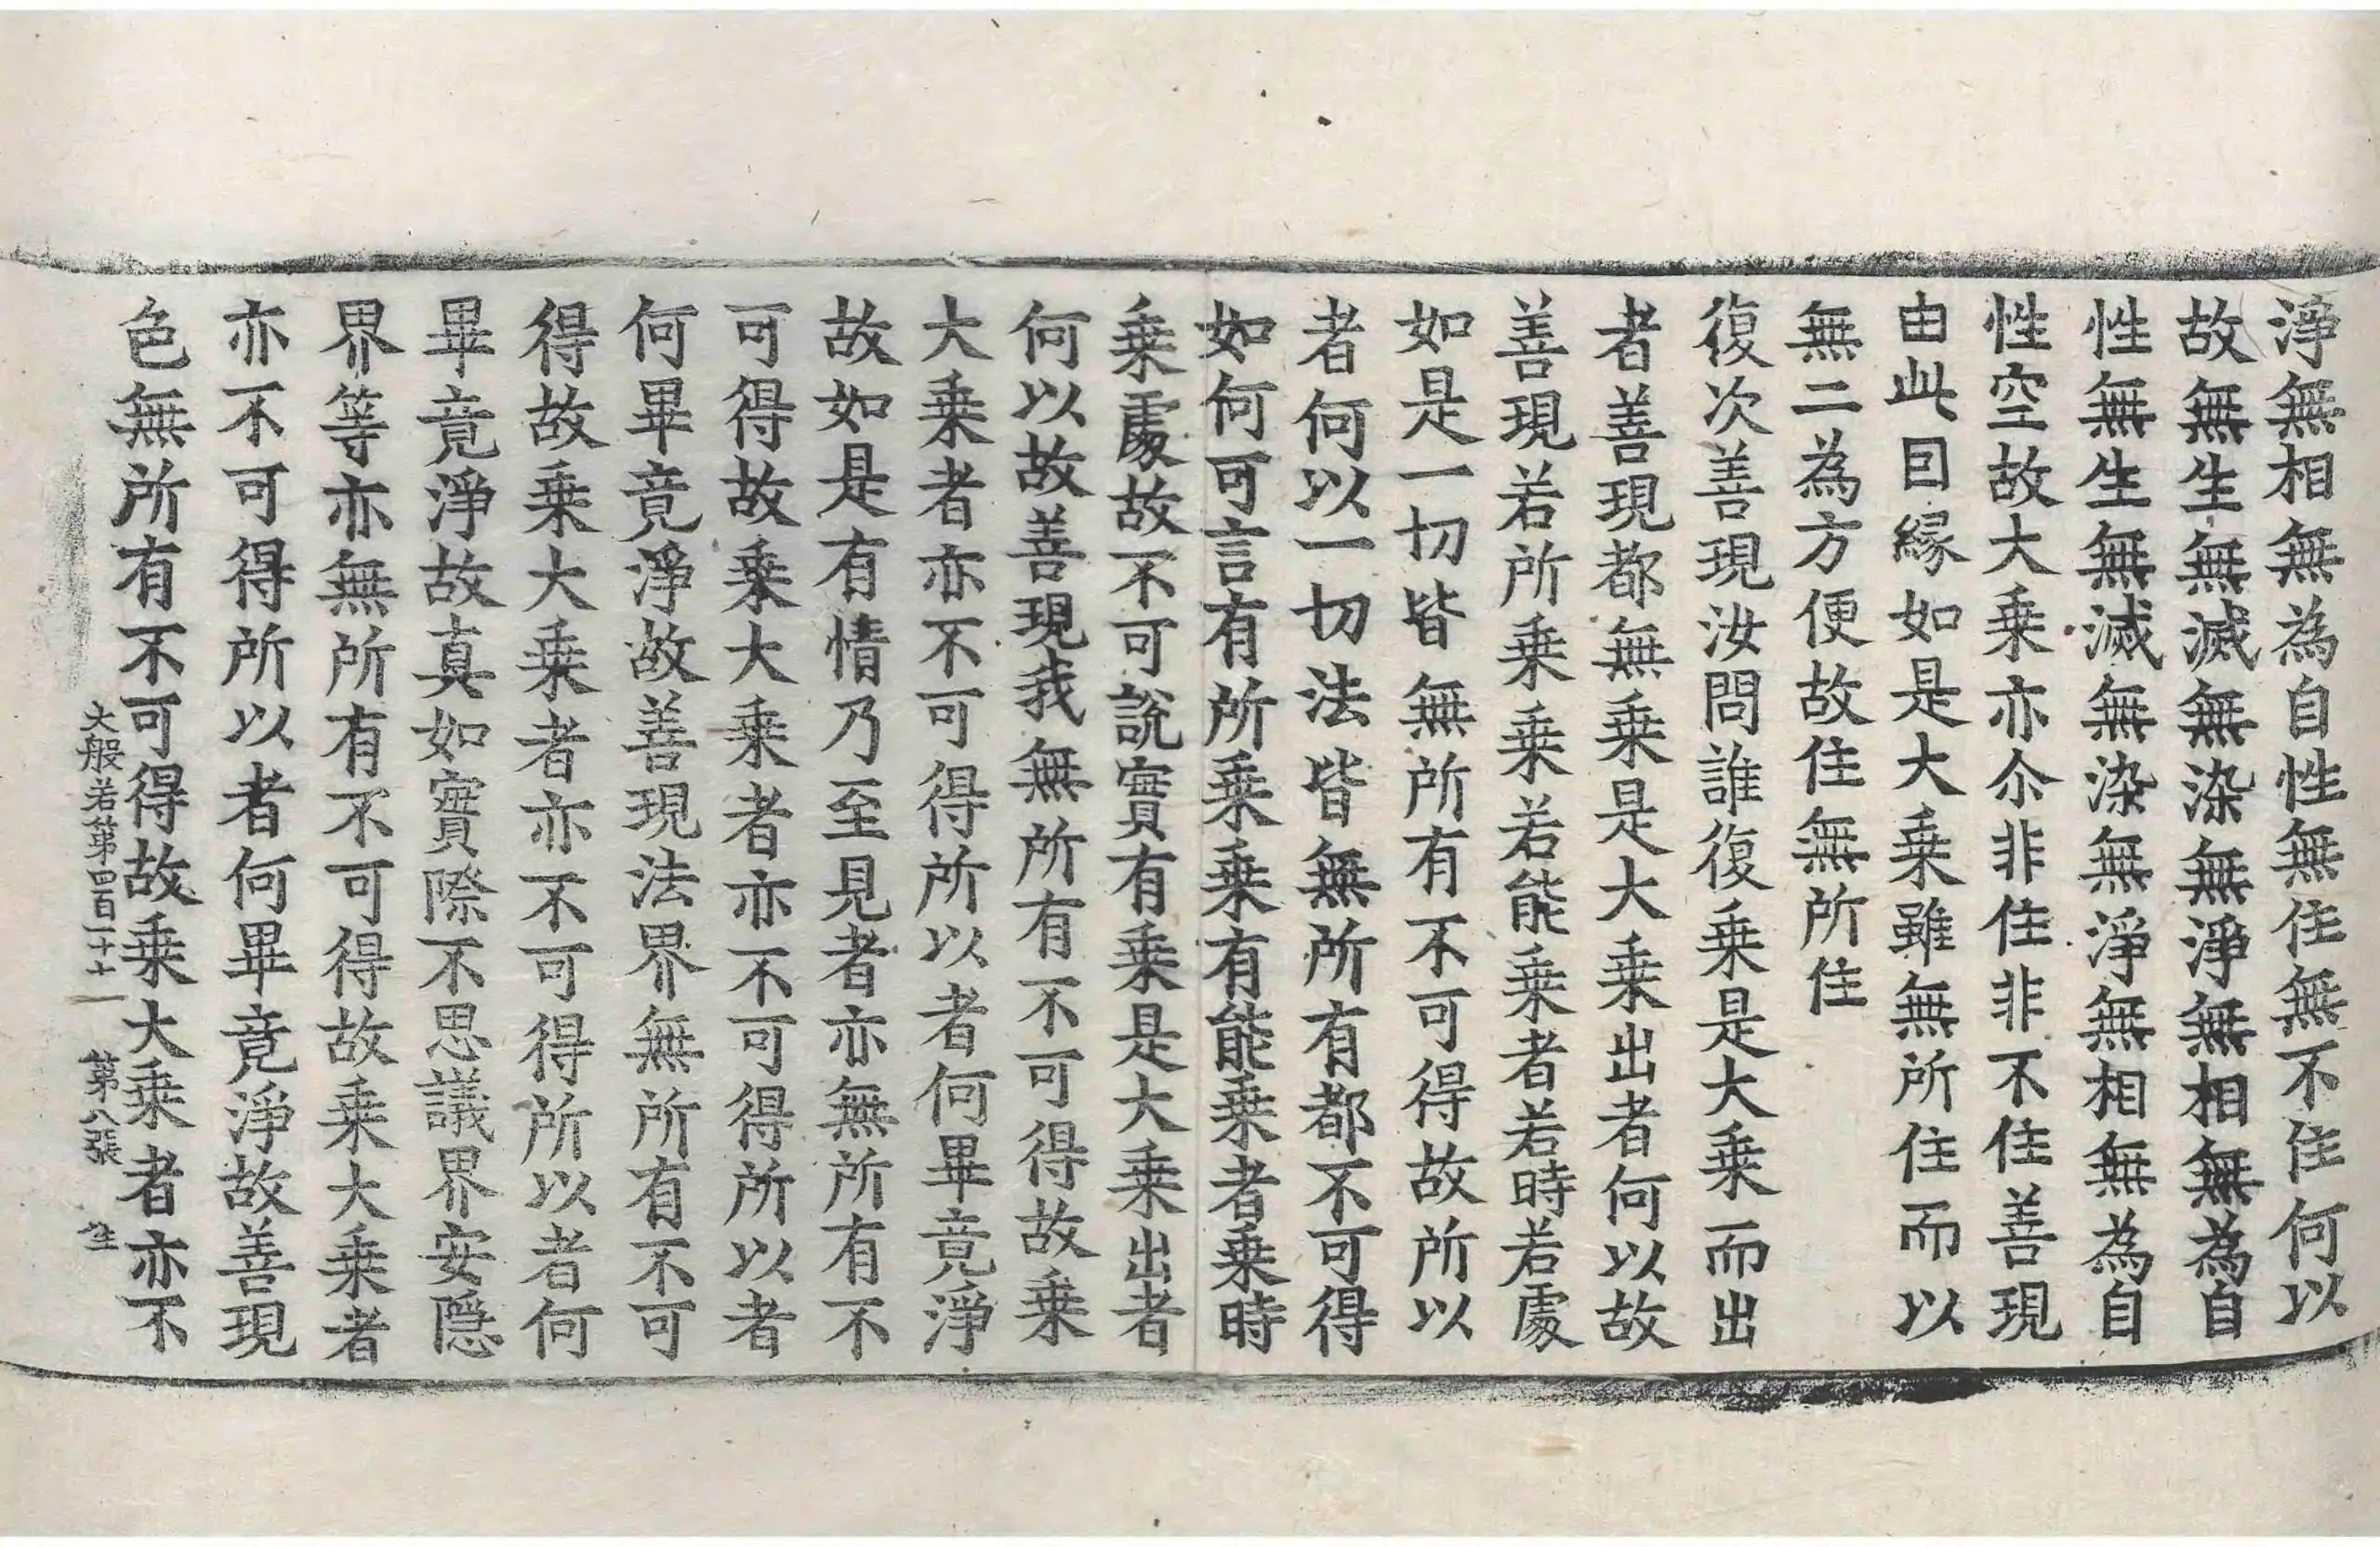 淨無相無為自性無住無不住何以
故無生無滅無染無淨無相無為自
性無生無滅無染無淨無相無為自
性空故大乗亦尒非住非不住善現
由此因縁如是大乗雖無所住而以
無二為方便故住無所住
復次善現汝問誰復乗是大乗而出
者善現都無乗是大乗出者何以故
善現若所乗乗若能乗者若時若處
如是一切皆無所有不可得故所以
者何以一切法皆無所有都不可得
如何可言有所乗乗有能乗者乗時
乗處故不可說實有乗是大乗出者
何以故善現我無所有不可得故乗
大乗者亦不可得所以者何畢竟淨
故如是有情乃至見者亦無所有不
可得故乗大乗者亦不可得所以者
何畢竟淨故善現法界無所有不可
得故乗大乗者亦不可得所以者何
畢竟淨故真如實際不思議界安隱
界等亦無所有不可得故乗大乗者
亦不可得所以者何畢竟淨故善現
色無所有不可得故乗大乗者亦不
大般若第四百一十七 第八張